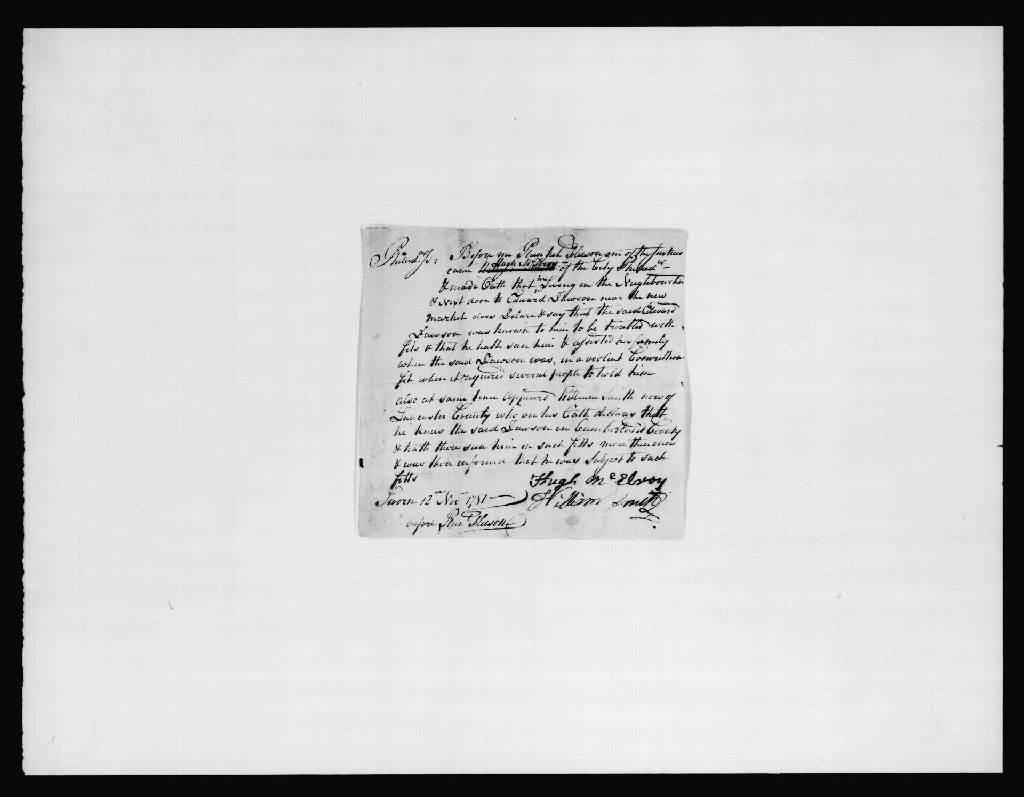 Philad. Ss: Before me Plunket Fleeson one of the Justices
came Hugh McElroy of the City Philad.
& made Oath that he Living in the Neighbourhood
& Next door to Edward Lawson near the new
market does Declare & say that the said Edward
Lawson was known to him to be troubled with
fits & that he hath seen him & assisted his family
when the said Lawson was, in a violent Convultion
fit when it required several people to hold him
also at same time appeared William Smith now of
Lancaster County who on his Oath declares that
he knew the said Lawson in Cumberland County
& hath there seen him in such fitts more than once
& was then informed that he was Subject to such
fitts
Hugh McElroy
Sworn 12th Novr 1781 William Smith
before Plunt Fleeson